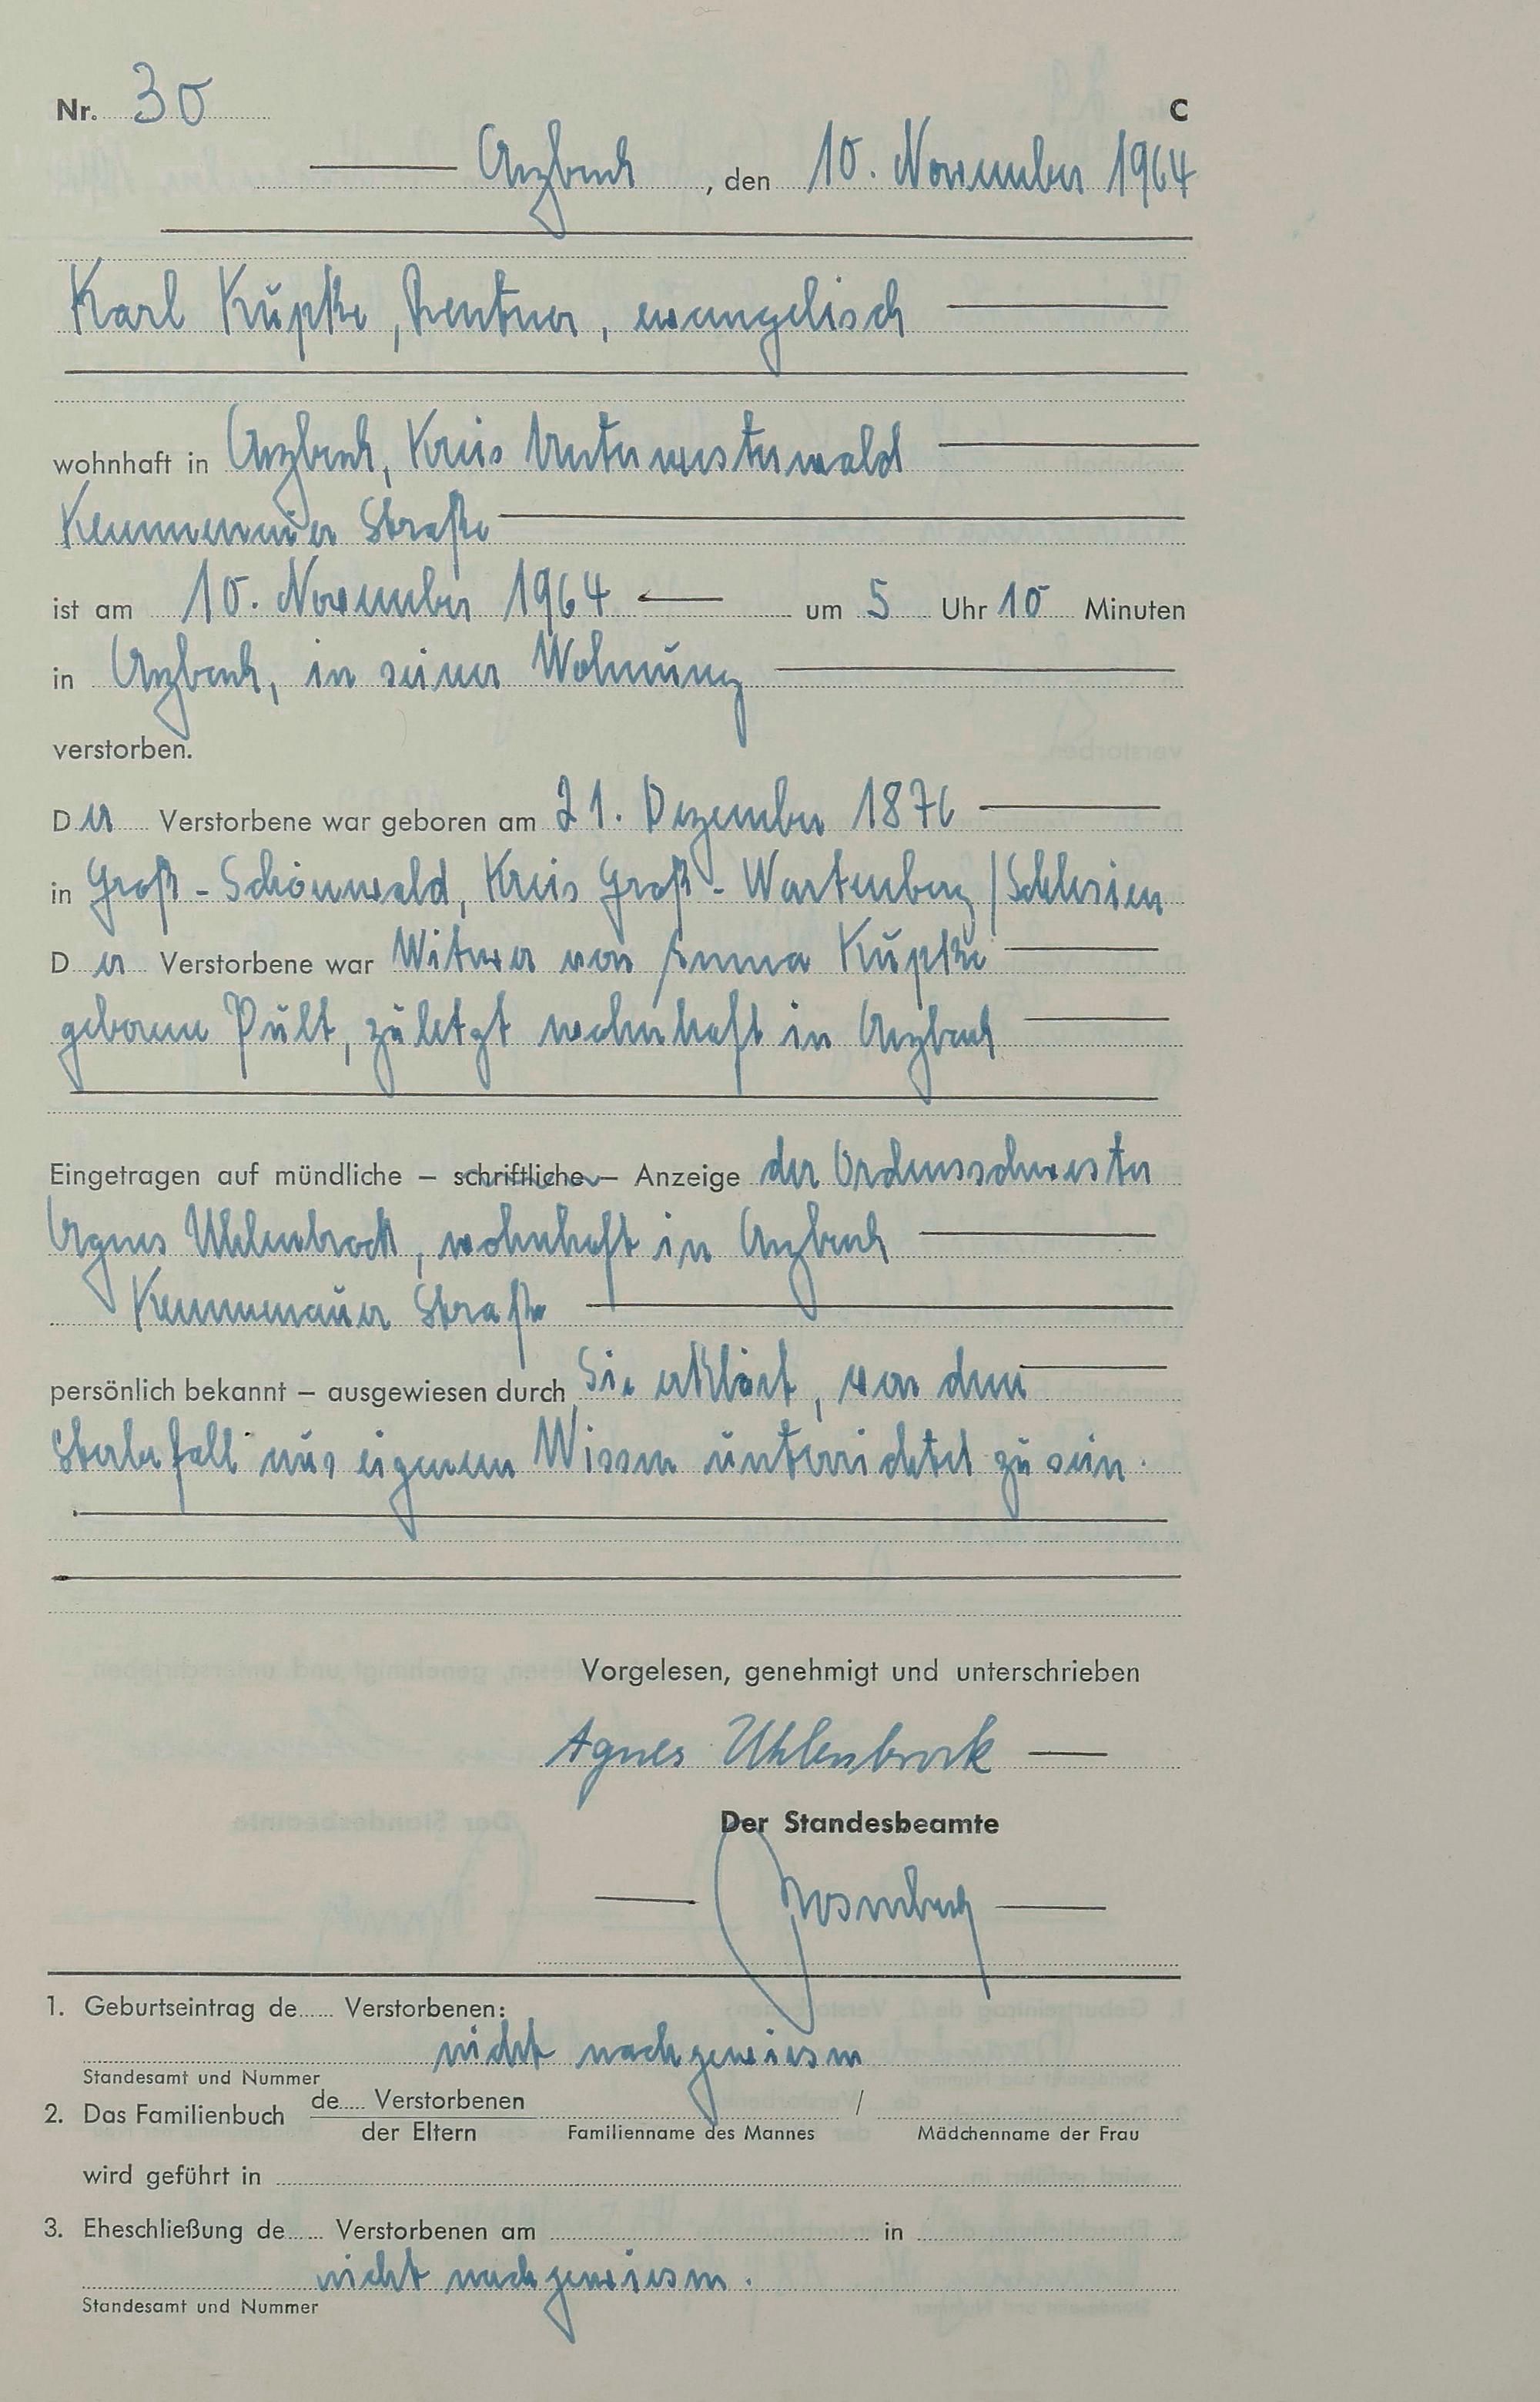 Nr. 30 C
Arzbach, den 10. November 1964
Karl Kupke, Rentner, evangelisch
wohnhaft in Arzbach, Kreis Unterwesterwald
Kemmenauer Straße
ist am 10. November 1964 um 5 Uhr 10 Minuten
in Arzbach, in seiner Wohnung
verstorben.
Der Verstorbene war geboren am 21. Dezember 1876
in Groß-Schönwald, Kreis Groß-Wartenberg/Schlesien
Der Verstorbene war Witwer von Anna Kupke
geborene Pult, zuletzt wohnhaft in Arzbach
Eingetragen auf mündliche – schriftliche – Anzeige der Ordensschwester
Agnes Uhlenbrock, wohnhaft in Arzbach
Kemmenauer Straße
persönlich bekannt – ausgewiesen durch Sie erklärt, von dem
Sterbefall aus eigenem Wissen unterrichtet zu sein.
Vorgelesen, genehmigt und unterschrieben
Agnes Uhlenbrock
Der Standesbeamte
1. Geburtseintrag de...... Verstorbenen:
nicht nachgewiesen
Standesamt und Nummer
2. Das Familienbuch de..... Verstorbenen /
der Eltern Familienname des Mannes Mädchenname der Frau
wird geführt in
3. Eheschließung de...... Verstorbenen am in
nicht nachgewiesen.
Standesamt und Nummer